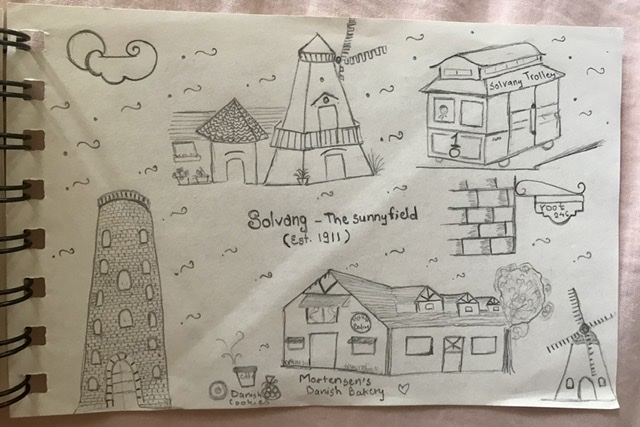 Solvang Trolley
1
Solvang - The sunnyfield
(Est. 1911)
Mortensen's
Danish Bakery
Danish
Cookies